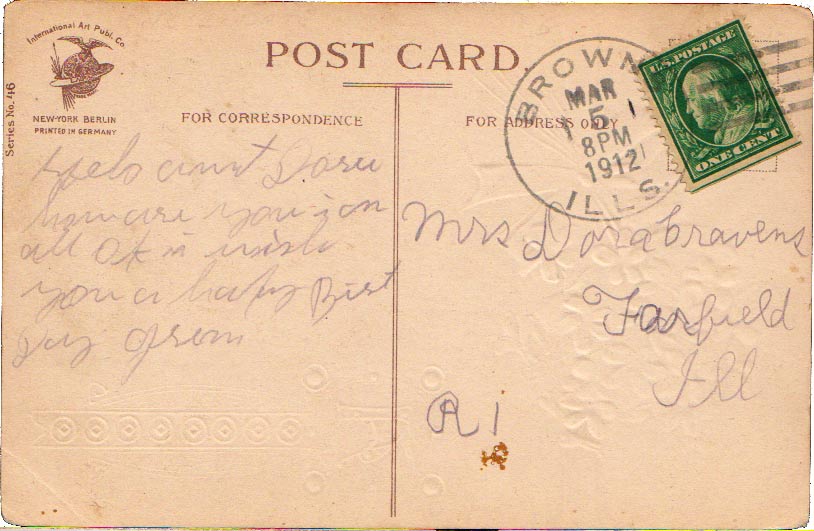 International Art Publ. Co.
NEW-YORK BERLIN
PRINTED IN GERMANY
Series No. 46
POST CARD.
FOR CORRESPONDENCE
FOR ADDRESS ONLY
BROWN
MAR
5
8PM
1912
ILLS.
U.S. POSTAGE
ONE CENT
Helo aunt Dora
how are you i am
all OK i wish
you a hapy Birt
Day from
Mrs Dora Cravens
Fairfield
Ill
R 1